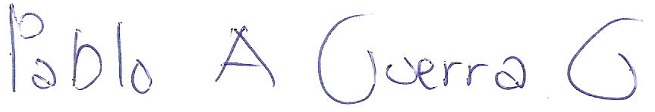 Pablo A Guerra G